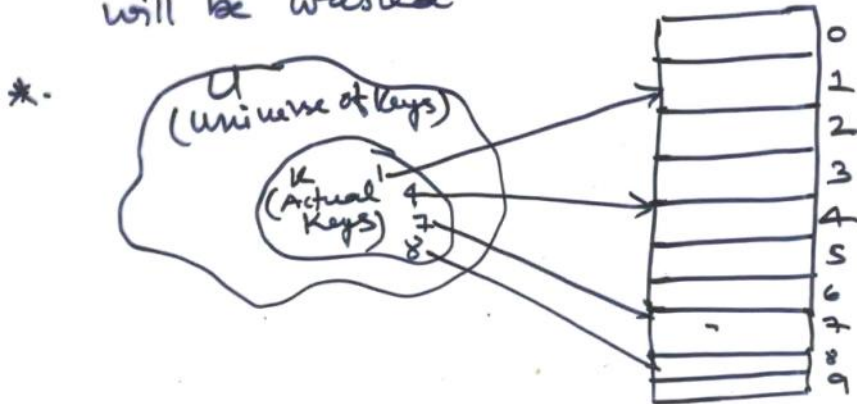 will be wasted
*.
U
(Universe of Keys)
K
(Actual
Keys)
1
4
7
8
0
1
2
3
4
5
6
7
8
9